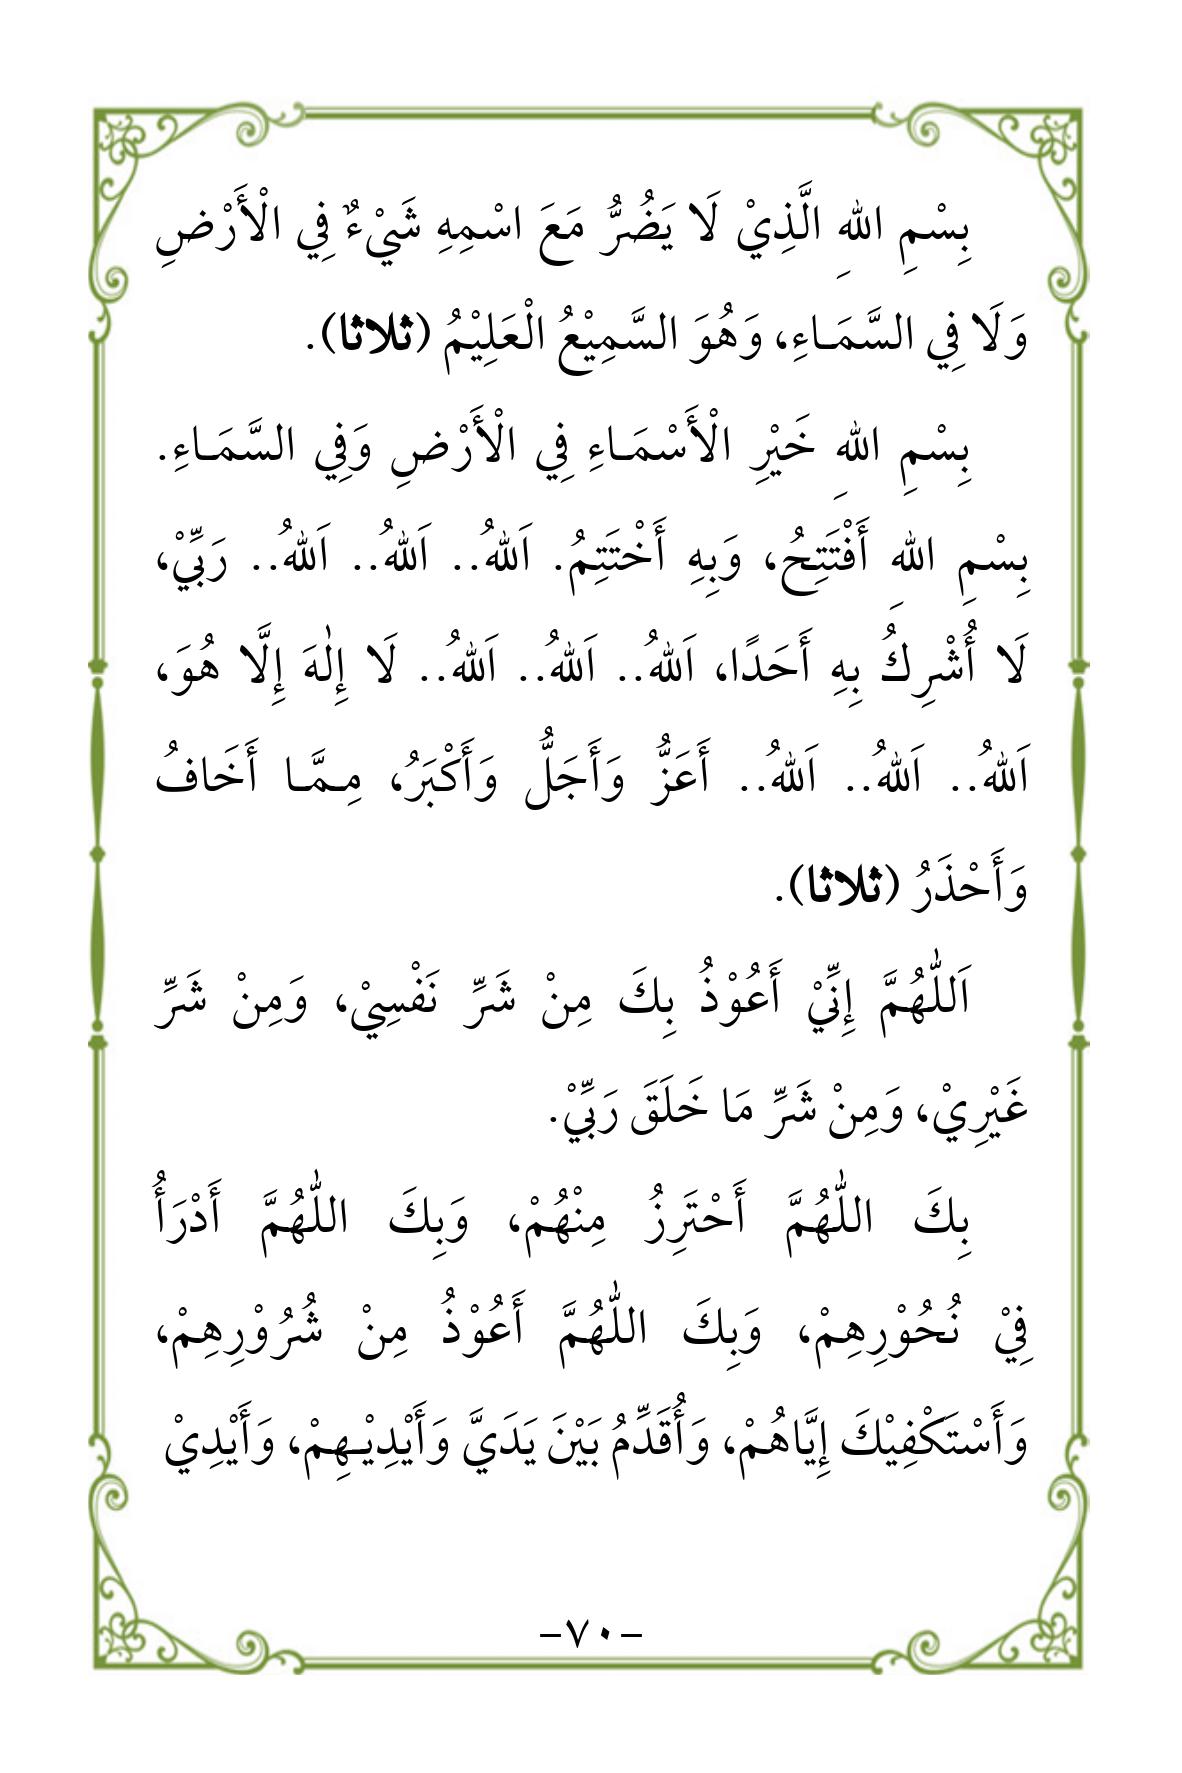 بِسْمِ اللهِ الَّذِيْ لَا يَضُرُّ مَعَ اسْمِهِ شَيْءٌ فِي الْأَرْضِ
وَلَا فِي السَّمَـاءِ، وَهُوَ السَّمِيْعُ الْعَلِيْمُ (ثلاثا).
بِسْمِ اللهِ خَيْرِ الْأَسْمَـاءِ فِي الْأَرْضِ وَفِي السَّمَـاءِ.
بِسْمِ اللهِ أَفْتَتِحُ، وَبِهِ أَخْتَتِمُ. اَللهُ.. اَللهُ.. اَللهُ.. رَبِّيْ،
لَا أُشْرِكُ بِهِ أَحَدًا، اَللهُ.. اَللهُ.. اَللهُ.. لَا إِلٰهَ إِلَّا هُوَ،
اَللهُ.. اَللهُ.. اَللهُ.. أَعَزُّ وَأَجَلُّ وَأَكْبَرُ، مِـمَّـا أَخَافُ
وَأَحْذَرُ (ثلاثا).
اَللّٰهُمَّ إِنِّيْ أَعُوْذُ بِكَ مِنْ شَرِّ نَفْسِيْ، وَمِنْ شَرِّ
غَيْرِيْ، وَمِنْ شَرِّ مَا خَلَقَ رَبِّيْ.
بِكَ اللّٰهُمَّ أَحْتَرِزُ مِنْهُمْ، وَبِكَ اللّٰهُمَّ أَدْرَأُ
فِيْ نُحُوْرِهِمْ، وَبِكَ اللّٰهُمَّ أَعُوْذُ مِنْ شُرُوْرِهِمْ،
وَأَسْتَكْفِيْكَ إِيَّاهُمْ، وَأُقَدِّمُ بَيْنَ يَدَيَّ وَأَيْدِيْـهِمْ، وَأَيْدِيْ
–٧٠–